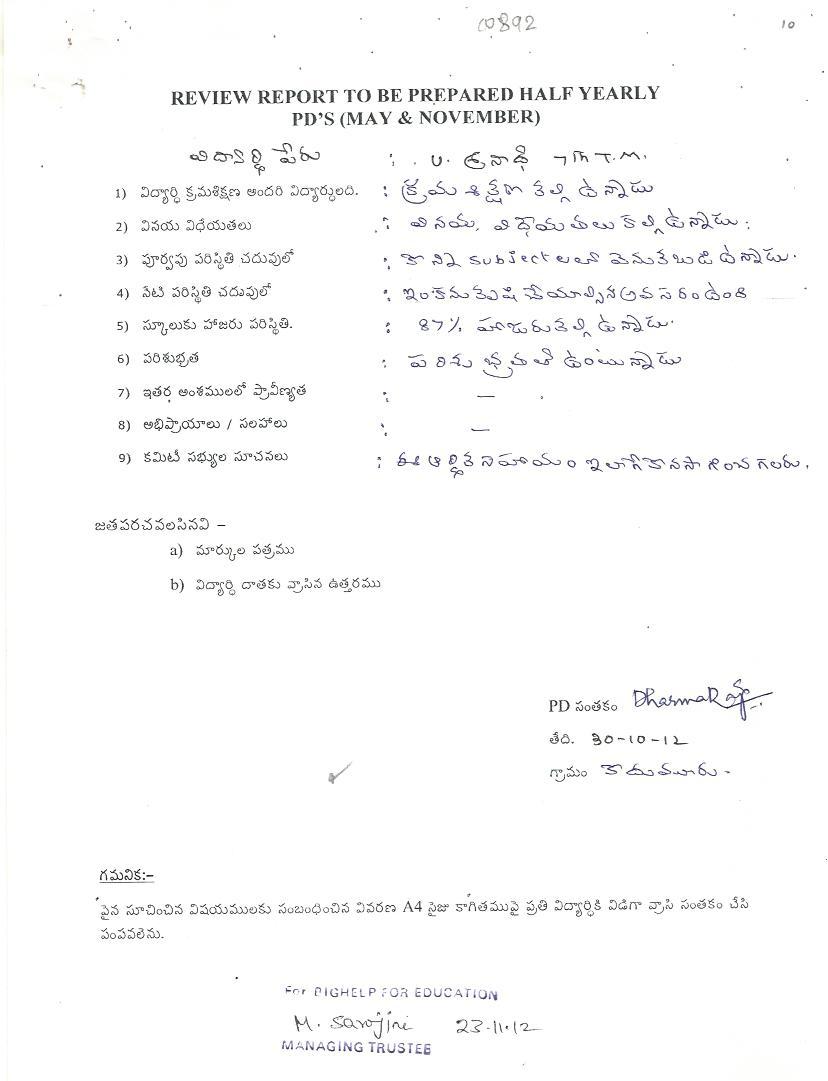 00892
10
REVIEW REPORT TO BE PREPARED HALF YEARLY
PD'S (MAY & NOVEMBER)
విద్యార్థి పేరు : U. శ్రీనాథ్ 7th T.M.
1) విద్యార్ధి క్రమశిక్షణ అందరి విద్యార్ధులది. : క్రమ శిక్షణ కల్గి ఉన్నాడు
2) వినయ విధేయతలు : వినయ, విధేయతలు కల్గి ఉన్నాడు.
3) పూర్వపు పరిస్థితి చదువులో : కొన్ని subject లలో వెనుకబడి ఉన్నాడు.
4) నేటి పరిస్థితి చదువులో : ఇంకను కృషి చేయాల్సిన అవసరం ఉంది
5) స్కూలుకు హాజరు పరిస్థితి. : 87% హాజరు కల్గి ఉన్నాడు.
6) పరిశుభ్రత : పరిశుభ్రతతో ఉంటున్నాడు
7) ఇతర అంశములలో ప్రావీణ్యత : —
8) అభిప్రాయాలు / సలహాలు : —
9) కమిటీ సభ్యుల సూచనలు : ఈ ఆర్థిక సహాయం ఇలాగే కొనసాగించగలరు.
జతపరచవలసినవి –
a) మార్కుల పత్రము
b) విద్యార్ధి దాతకు వ్రాసిన ఉత్తరము
PD సంతకం DharmaRaju
తేది. 30-10-12
గ్రామం కొదుమూరు.
గమనిక:–
పైన సూచించిన విషయములకు సంబంధించిన వివరణ A4 సైజు కాగితముపై ప్రతి విద్యార్ధికి విడిగా వ్రాసి సంతకం చేసి
పంపవలెను.
For BIGHELP FOR EDUCATION
M. Sarojini 23-11-12
MANAGING TRUSTEE